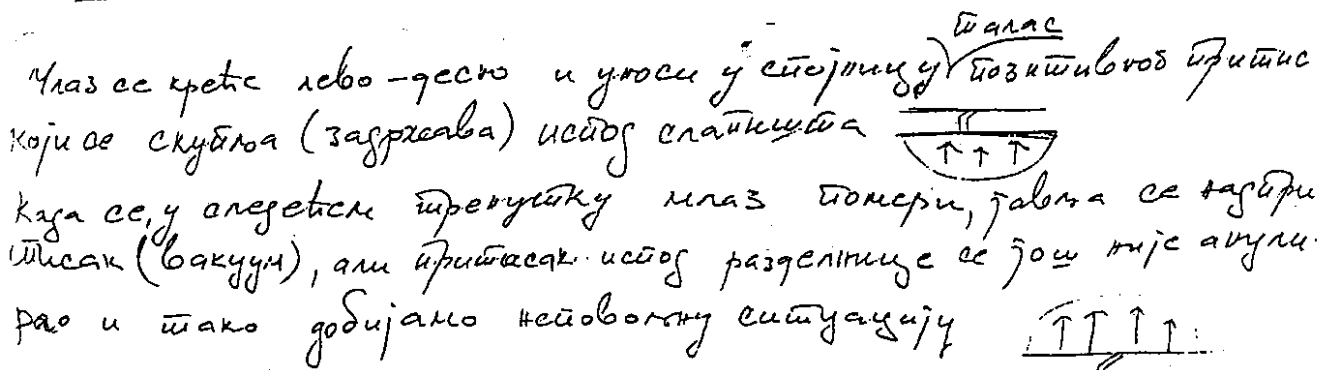 талас
Млаз се креће лево-десно и уноси у спојницу позитивног притис
који се скупља (задржава) испод слапишта
Када се, у следећем тренутку млаз помери, јавља се надпри
тисак (вакуум), али притисак испод разделнице се још није анули-
рао и тако добијамо неповољну ситуацију